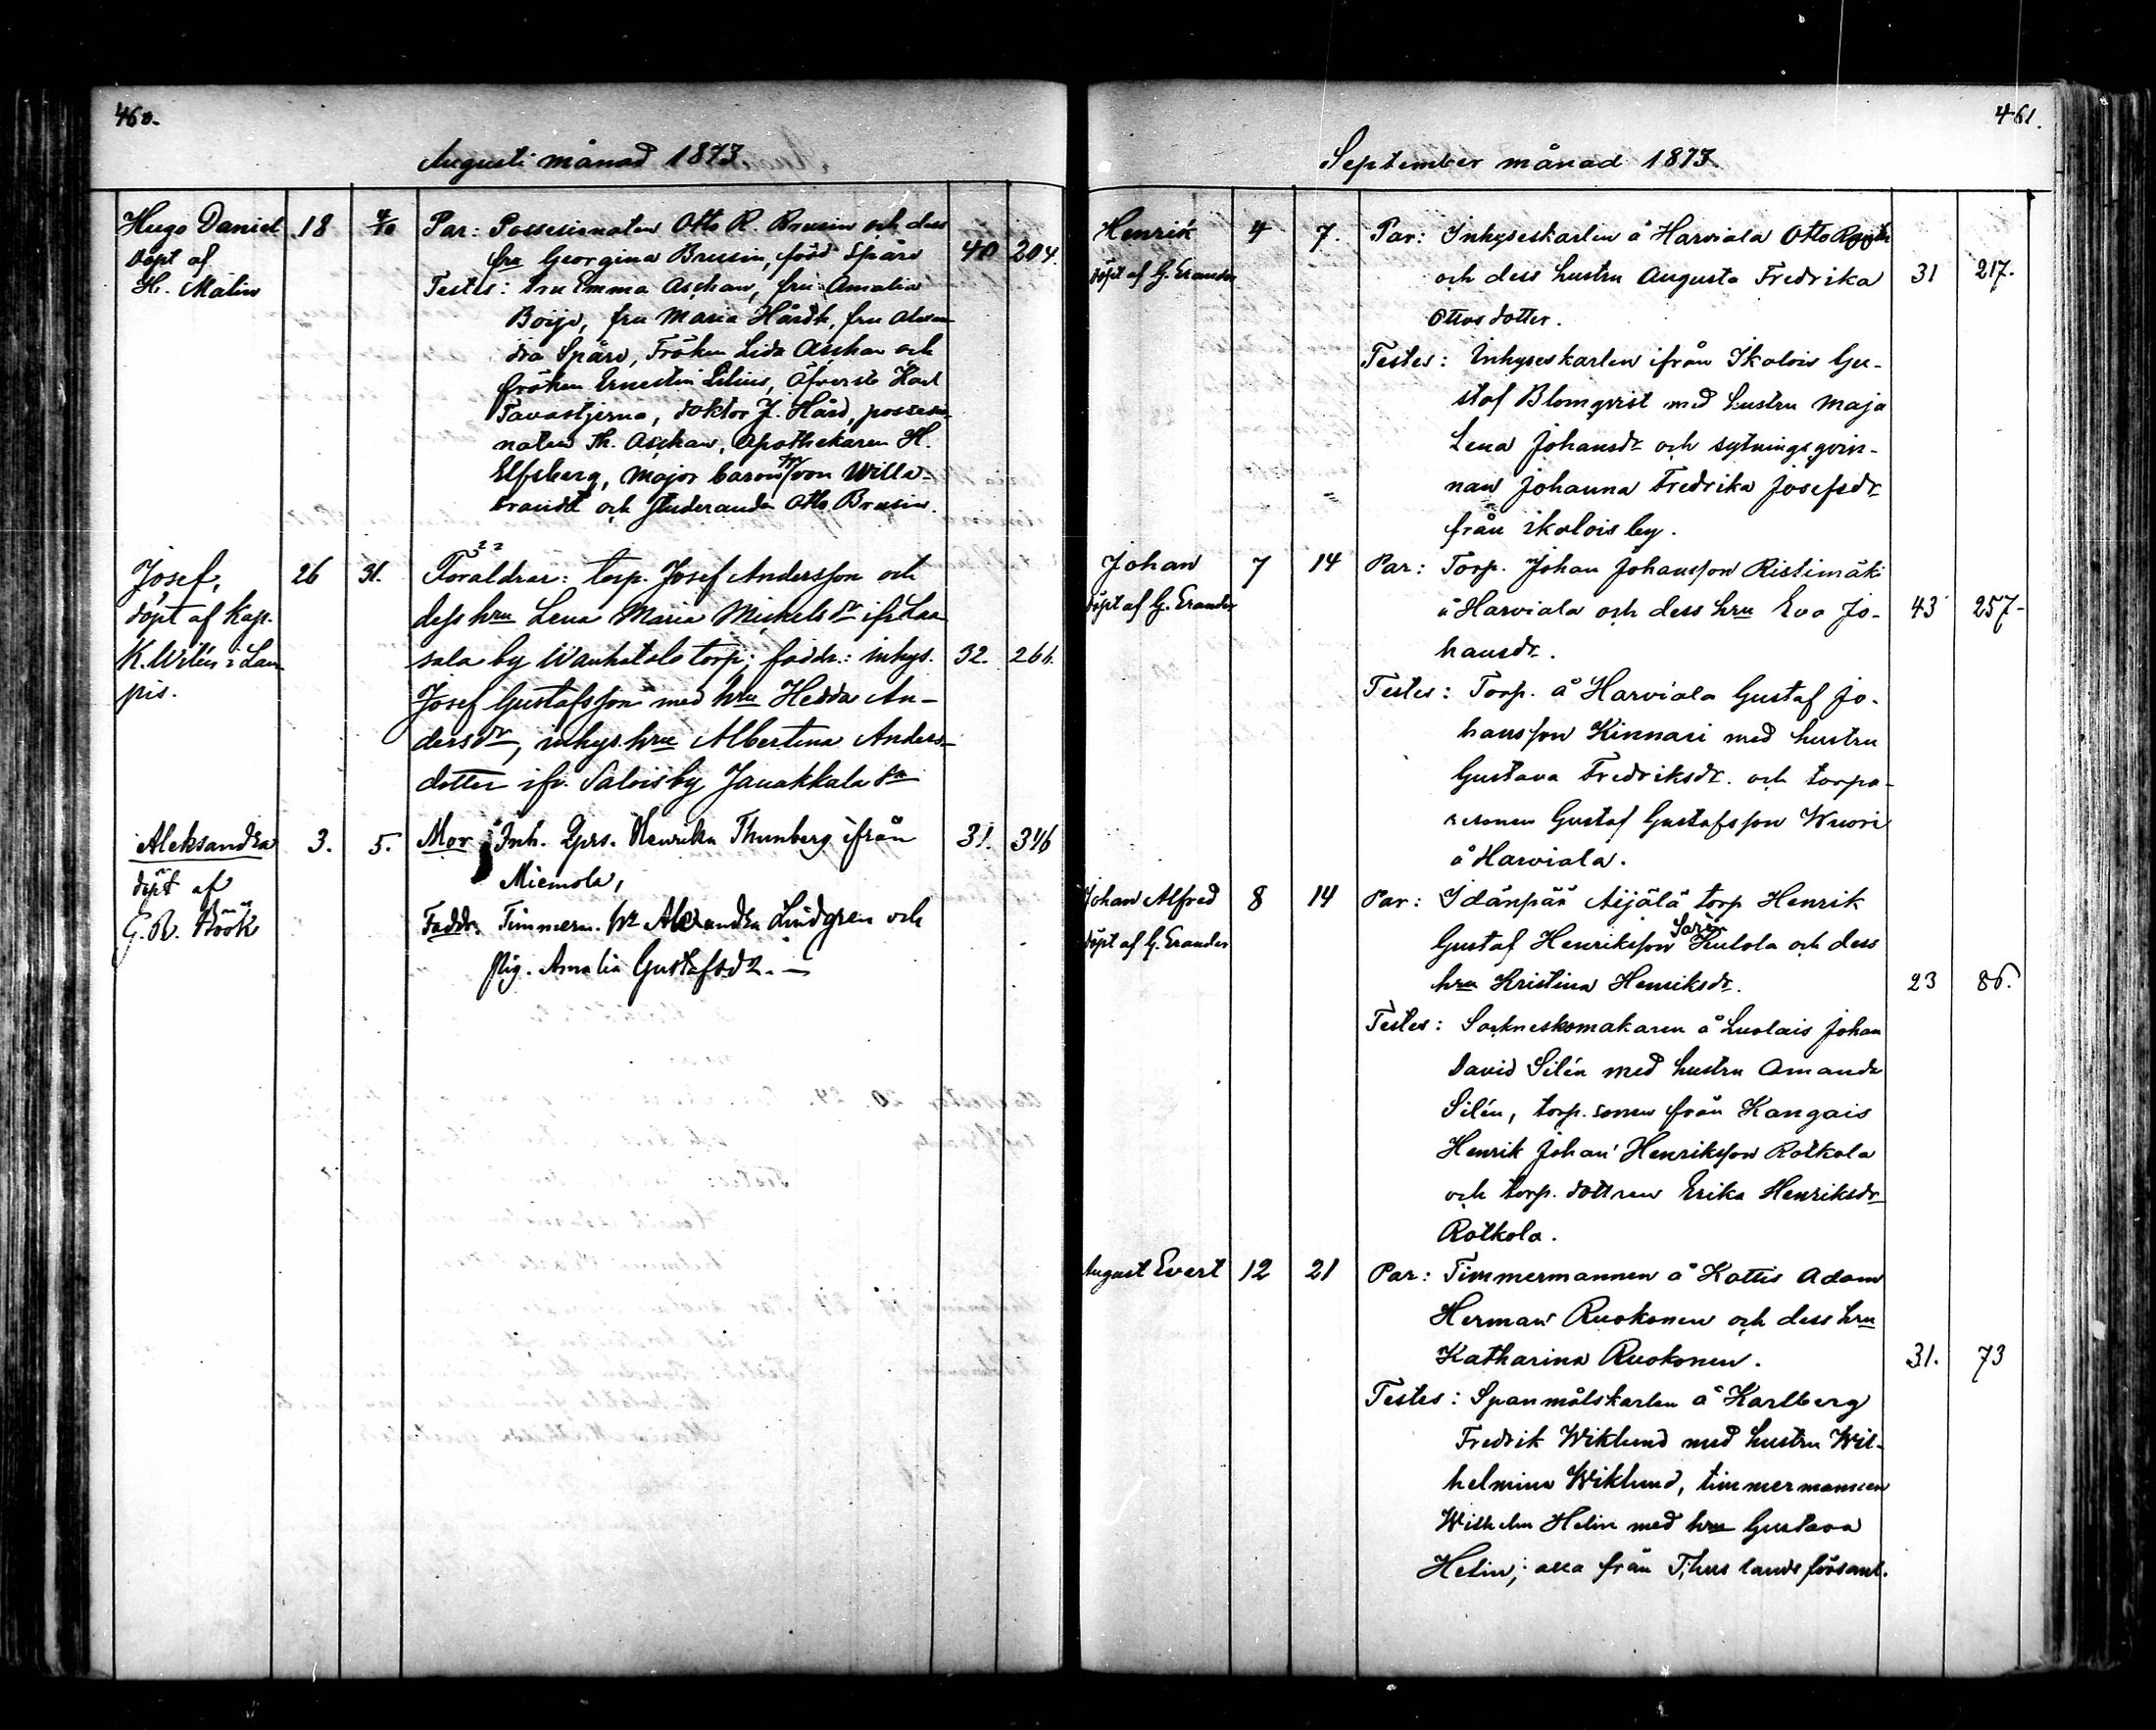 460.
Augusti månad 1873
Hugo Daniel 18 4/10 Par: Possessionaten Otto R. Brusin och dess
döpt af fru Georgina Brusin, född Spåre 40 204.
H. Malin Testes: Fru Emma Aschan, fru Amalia
Boije, fru Maria Hårdh, fru Alexan
dra Spåre, Fröken Lida Aschan och
fröken Ernestin Lilius, Öfverste Karl
Tavastjerna, doktor J. Hård, possessio
naten Th. Aschan, Apothekaren H.
Elfsberg, Major baron von Wille-
brandt och Studeranden Otto Brusin.
Josef, 26 31. Föräldrar: torp. Josef Andersson och
döpt af Kap. dess hru Lena Maria Mickelsdr ifr Laa
K. Wilén i Lam sala by Wanhatalo torp; faddr.: inhys. 32. 266.
pis. Josef Gustafsson med hru Hedda An-
dersdr, inhys. hru Albertina Anders-
dotter ifr. Salois by Janakkala sn
Aleksandra 3. 5. Mor Inh. Qprs. Henrika Thunberg ifrån 31. 346
döpt af Miemola,
G. R. Böök Faddr. Timmerm. hr Alexandra Lindgren och
pig. Amalia Gustafsdr. —
461.
September månad 1873.
Henrik 4 7. Par: Inhyseskarlen å Harviala Otto
döpt af G. Erander och dess hustru Augusta Fredrika 31 217.
Ottosdotter.
Testes: Inhyseskarlen ifrån Ikalois Gu-
staf Blomqvist med hustru Maja
Lena Johansdr och sytningsqvin-
nan Johanna Fredrika Josefsdr
från Ikalois by.
Johan 7 14 Par: Torp. Johan Johansson Ristimäki
döpt af G. Erander å Harviala och dess hru Eva Jo- 43 257-
hansdr.
Testes: Torp. å Harviala Gustaf Jo-
hansson Kinnari med hustru
Gustava Fredriksdr. och torpa-
resonen Gustaf Gustafsson Wuori
å Harviala.
Johan Alfred 8 14 Par: Idänpää Äijälä torp Henrik
döpt af G. Erander Gustaf Henriksson och dess
hru Kristina Henriksdr. 23 86.
Testes: Sockneskomakaren å Luolais Johan
David Silén med hustru Amanda
Silén, torp. sonen från Kangais
Henrik Johan Henriksson Rotkola
och torp. dottren Erika Henriksdr
Rotkola.
August Evert 12 21 Par: Timmermannen å Kattis Adam
Herman Ruokonen och dess hru
Katharina Ruokonen. 31. 73
Testes: Spanmålskarlen å Karlberg
Fredrik Wiklund med hustru Wil-
helmina Wiklund, timmermannen
Wilhelm Helin med hru Gustava
Helin; alla från T:hus landsförsaml.